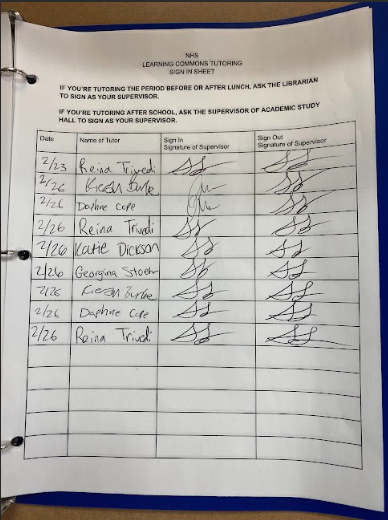 NHS
LEARNING COMMONS TUTORING
SIGN IN SHEET
IF YOU'RE TUTORING THE PERIOD BEFORE OR AFTER LUNCH, ASK THE LIBRARIAN
TO SIGN AS YOUR SUPERVISOR.
IF YOU'RE TUTORING AFTER SCHOOL, ASK THE SUPERVISOR OF ACADEMIC STUDY
HALL TO SIGN AS YOUR SUPERVISOR.
Date Name of Tutor Sign In Signature of Supervisor Sign Out Signature of Supervisor
2/23 Reina Trivedi
2/26
2/26 Daphne Cope
2/26 Reina Trivedi
2/26 Katie Dickson
2/26 Georgina
2/26
2/26 Daphne Cope
2/26 Reina Trivedi